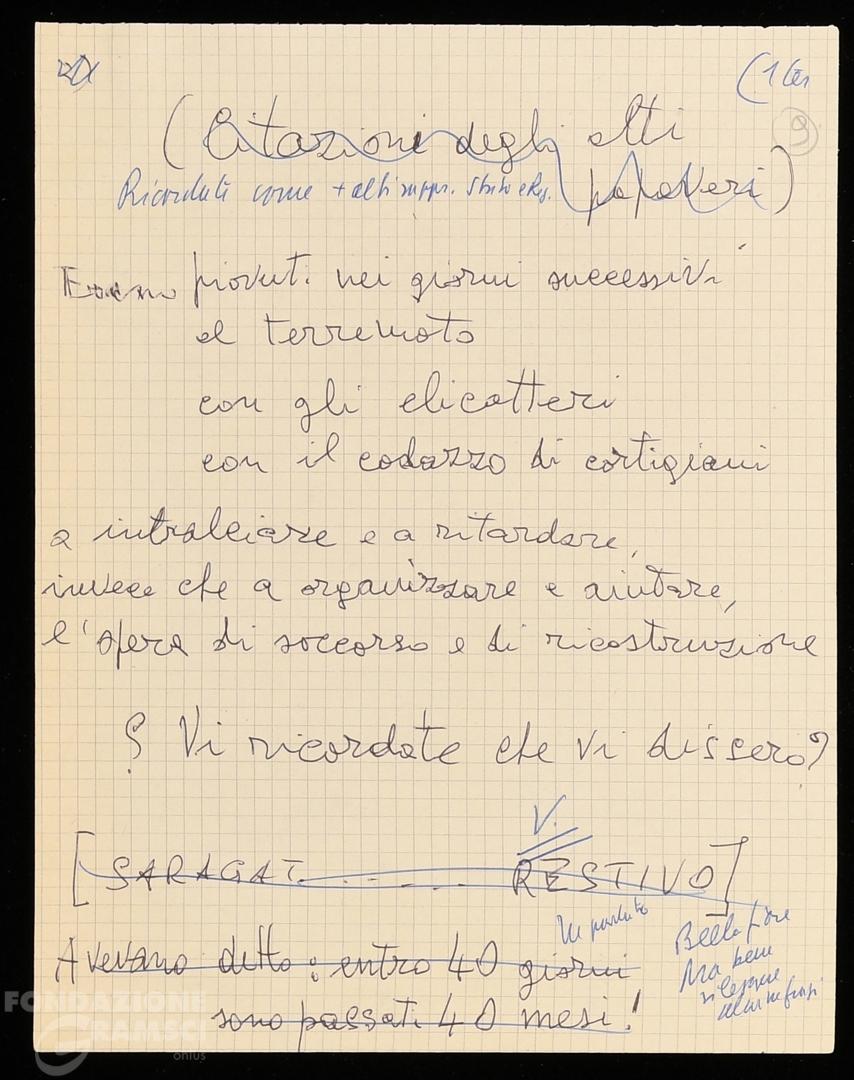 (1 ter
9
(Citazioni degli alti
papaveri)
Ricordate come + alti rappr. Stato e Reg.
Erano piovuti nei giorni successivi
al terremoto
con gli elicotteri
con il codazzo di cortigiani
a intralciare e a ritardare,
invece che a organizzare e aiutare,
l'opera di soccorso e di ricostruzione
? Vi ricordate che vi dissero?
V.
[SARAGAT . . . . . . RESTIVO]
Avevano detto: entro 40 giorni
sono passati 40 mesi!
Ma bene
FONDAZIONE
GRAMSCI
onlus